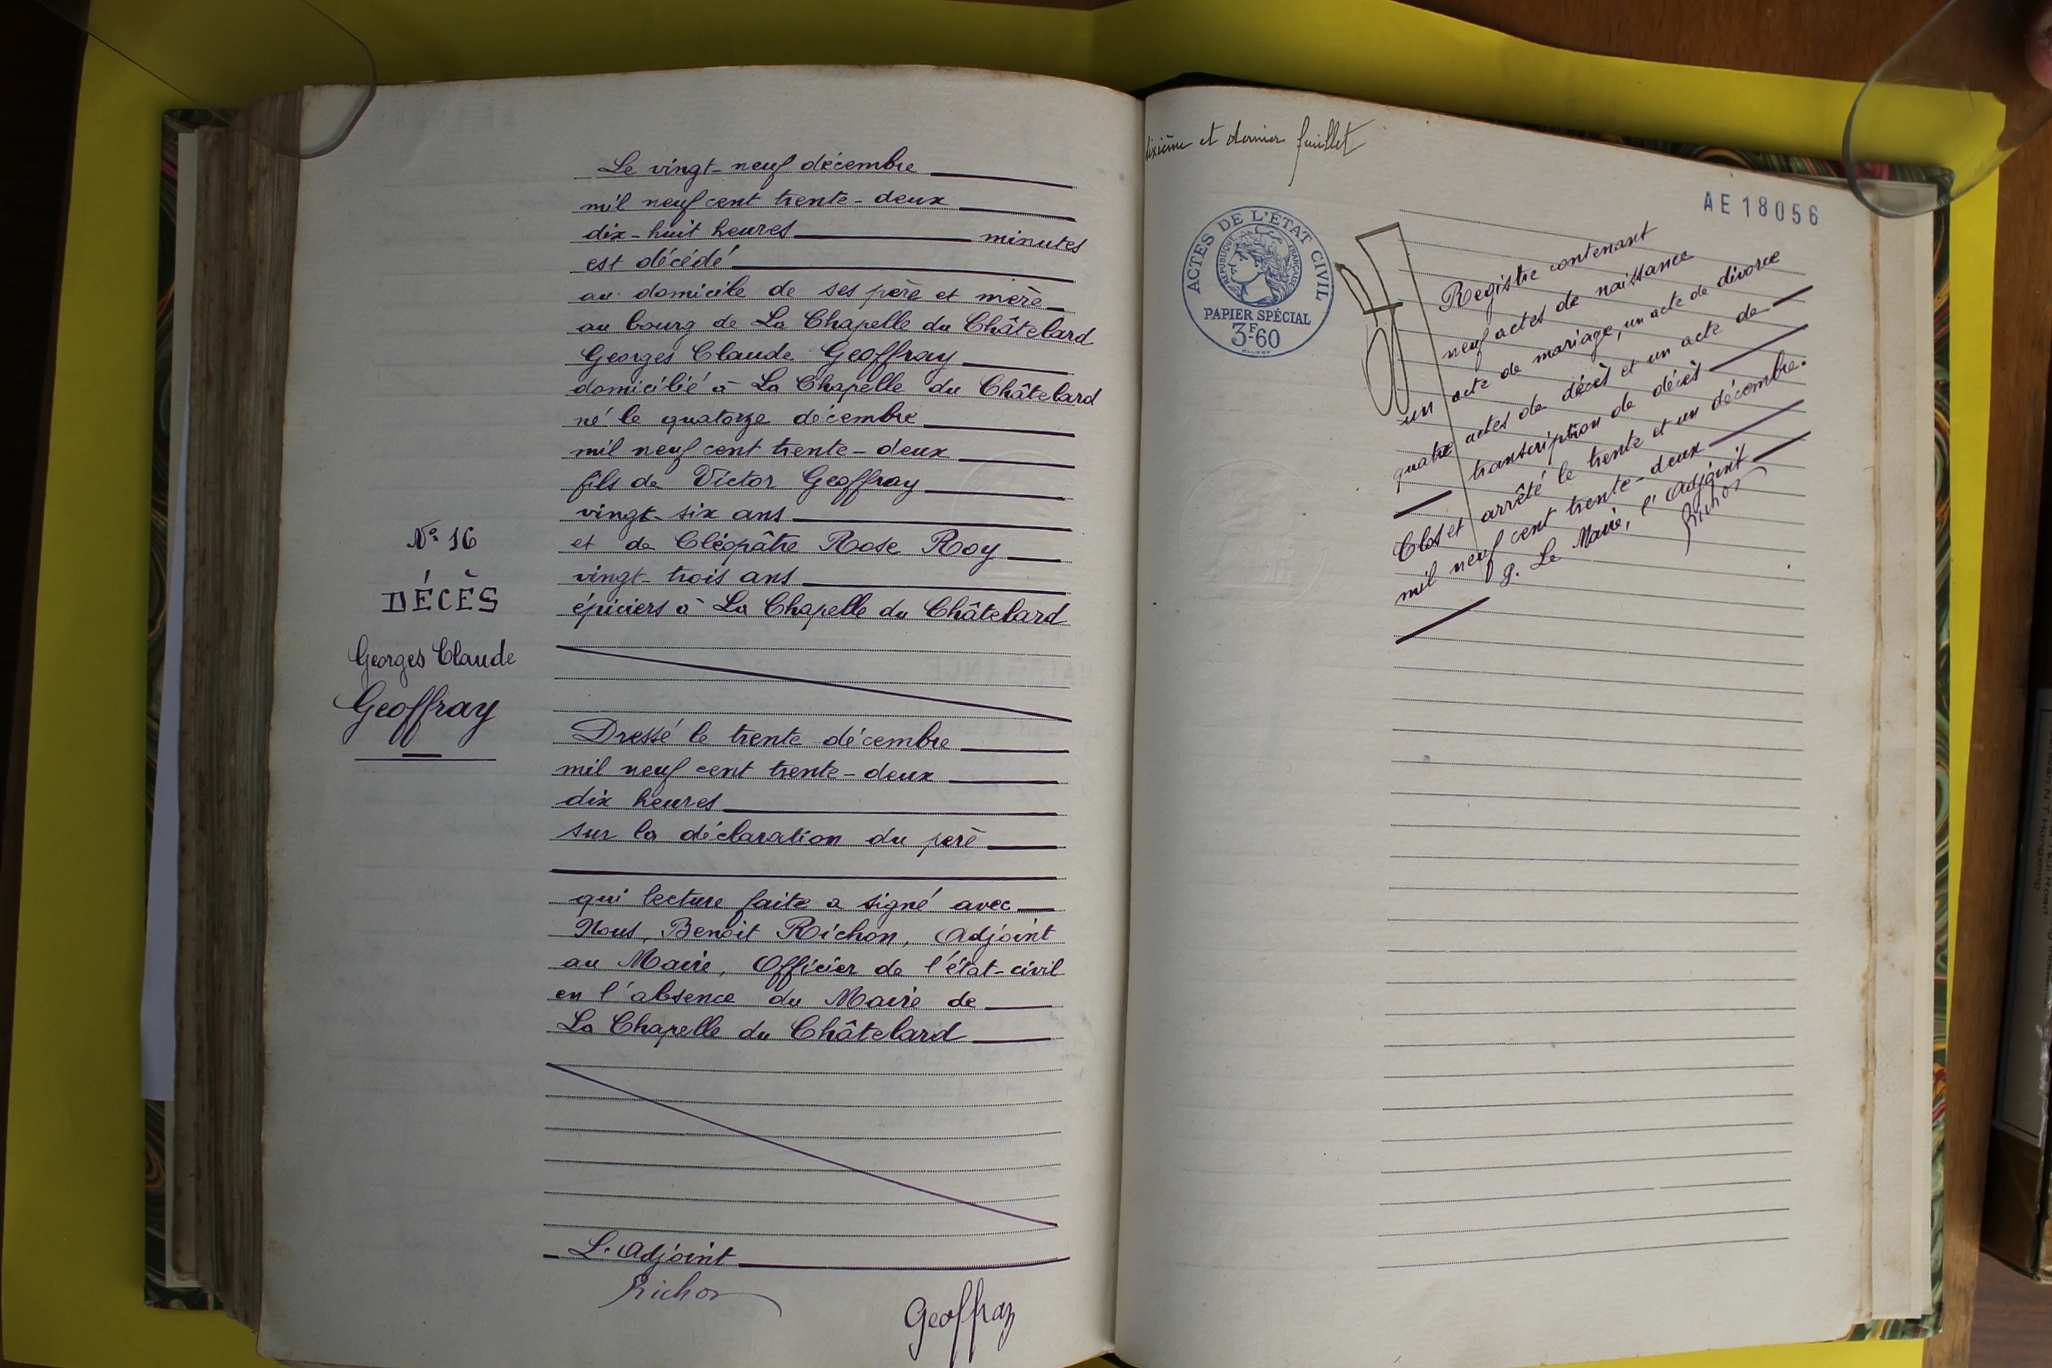 Le vingt-neuf décembre
mil neuf cent trente-deux
dix-huit heures minutes
est décédé
au domicile de ses père et mère
au bourg de La Chapelle du Châtelard
Georges Claude Geoffray
domicilié à La Chapelle du Châtelard
né le quatorze décembre
mil neuf cent trente-deux
fils de Victor Geoffray
vingt-six ans
et de Cléopâtre Rose Roy
vingt-trois ans
épiciers à La Chapelle du Châtelard
N° 16
DÉCÈS
Georges Claude
Geoffray
Dressé le trente décembre
mil neuf cent trente-deux
dix heures
sur la déclaration du père
qui lecture faite a signé avec
Nous, Benoit Richon, Adjoint
au Maire, Officier de l'état-civil
en l'absence du Maire de
La Chapelle du Châtelard
L'Adjoint
Richon
Geoffray
dixième et dernier feuillet
AE 18056
ACTES DE L'ÉTAT CIVIL
RÉPUBLIQUE FRANÇAISE
PAPIER SPÉCIAL
3F.60
Registre contenant
neuf actes de naissance
un acte de mariage, un acte de divorce
quatre actes de décès et un acte de
transcription de décès
Clos et arrêté le trente et un décembre.
mil neuf cent trente-deux
p. Le Maire, l'Adjoint
Richon